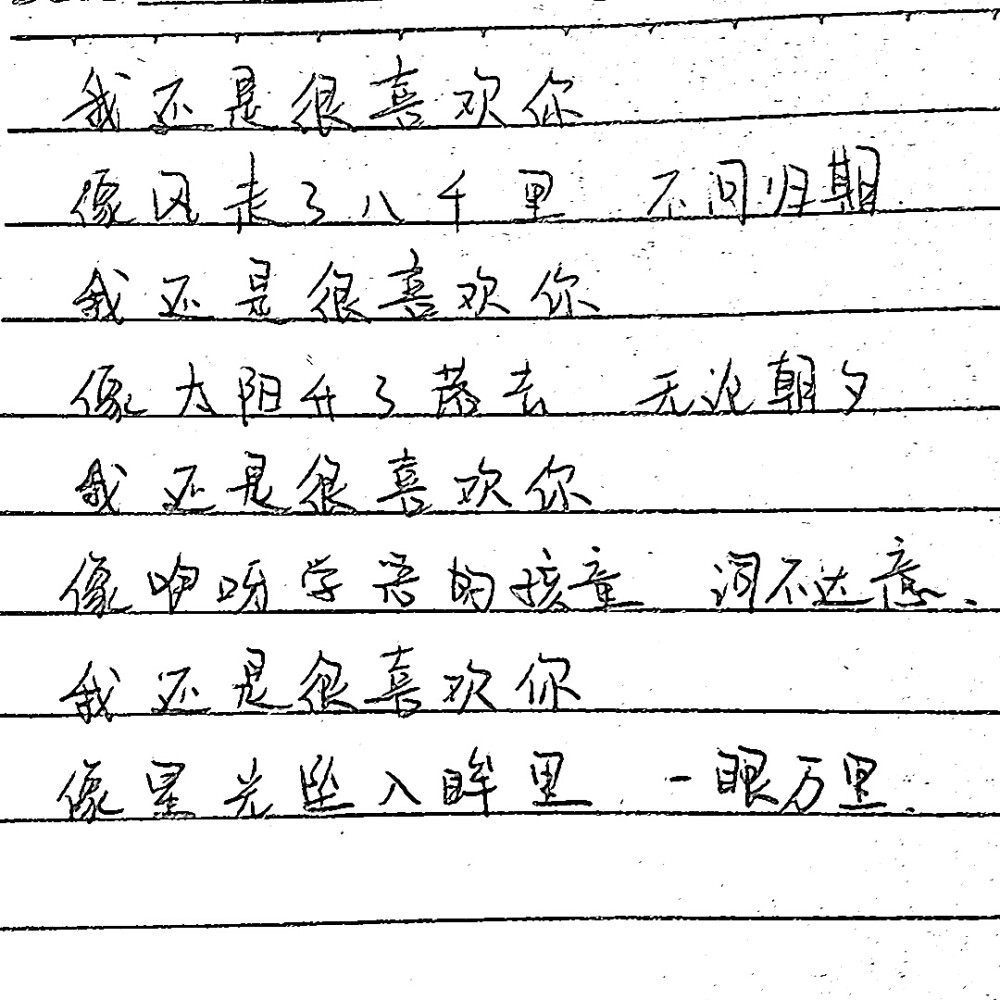 我还是很喜欢你
像风走了八千里 不问归期.
我还是很喜欢你
像太阳升了落去 无论朝夕
我还是很喜欢你
像咿呀学语的孩童 词不达意.
我还是很喜欢你
像星光坠入眸里 一眼万里.